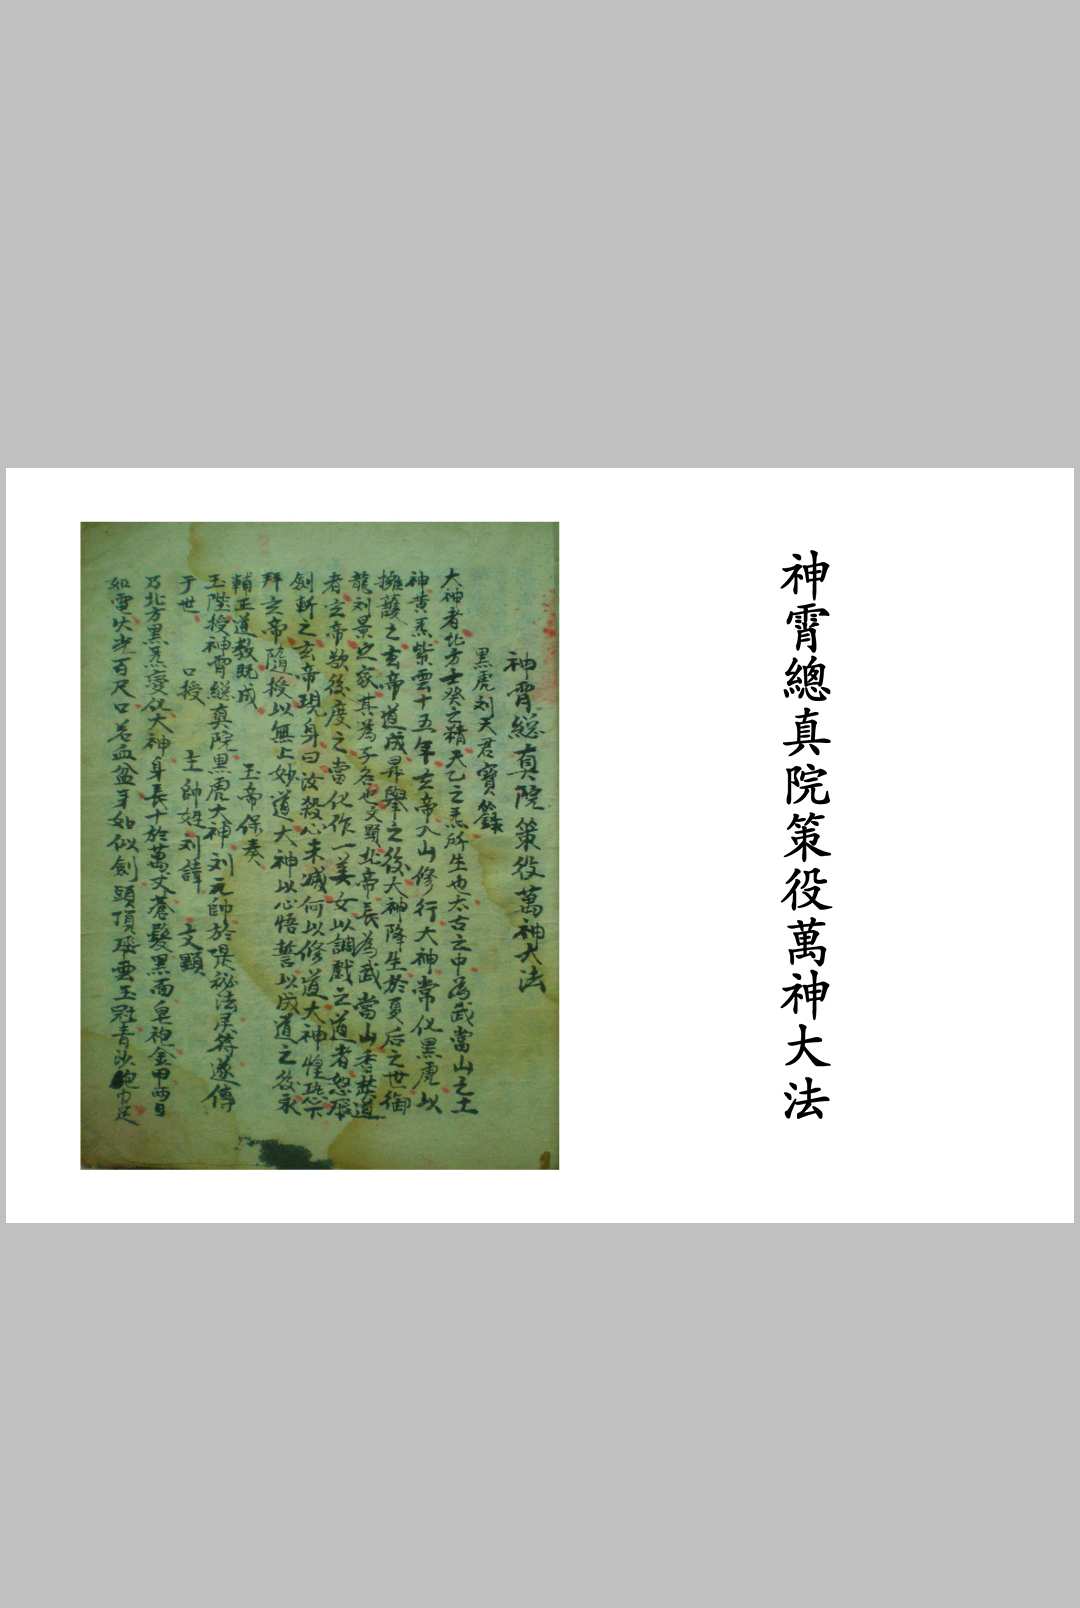 神霄總真院策役萬神大法
神霄總真院策役萬神大法
黑虎刘天君寶籙
大神者北方壬癸之精天乙之炁所生也太古之中為武當山之土
神黄帝紫雲十五年玄帝入山修行大神常化黑虎以
擁護之玄帝道成昇舉之後大神降生於夏后之世御
龍刘景之家其為子名也文顕北帝長為武當山香獃道
者玄帝欲後度之當化作一美女以調戲之道者怒脹
劍斬之玄帝現身曰汝殺心未减何以修道大神惶恐下
拜玄帝隨授以無上妙道大神以心悟誓以成道之後永
輔正道教既成 玉帝保奏
玉陛授神霄総真院黒虎大神刘元帥於是祕法灵符遂傳
于世 口授 主帥姓刘諱 文顕
乃北方黑炁變化大神身長十於萬丈蒼髮黑面皂袍金甲两目
如電火光百尺口若血盆牙如似劍頭頂 雲玉冠青 袍巾足